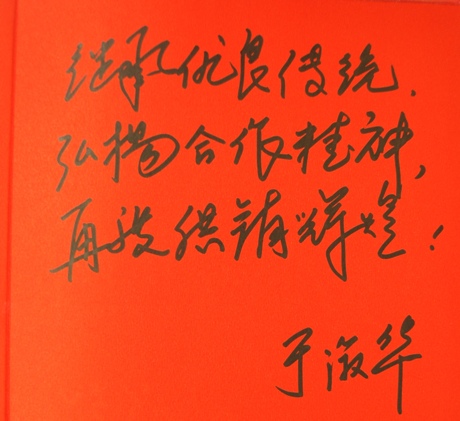 继承优良传统，
弘扬合作精神，
再供销辉煌！
于淑华